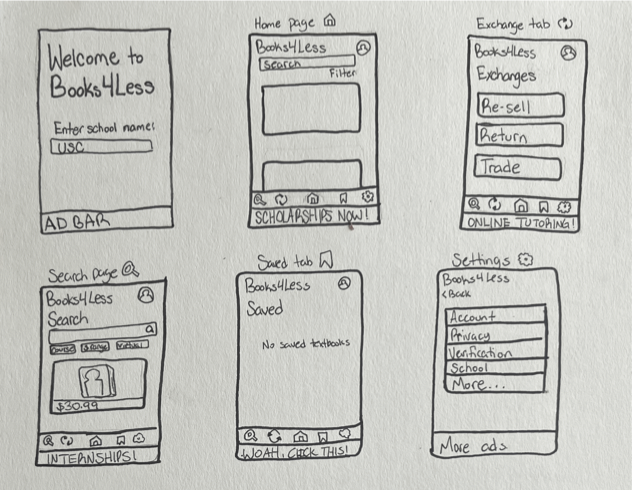 Welcome to
Books4Less
Enter school name:
USC
AD BAR
Home page
Books4Less
Search
Filter
SCHOLARSHIPS NOW!
Exchange tab
Books4Less
Exchanges
Re-sell
Return
Trade
ONLINE TUTORING!
Search page
Books4Less
Search
$30.99
INTERNSHIPS!
Saved tab
Books4Less
Saved
No saved textbooks
WOAH, CLICK THIS!
Settings
Books4Less
<Back
Account
Privacy
Verification
School
More...
More ads